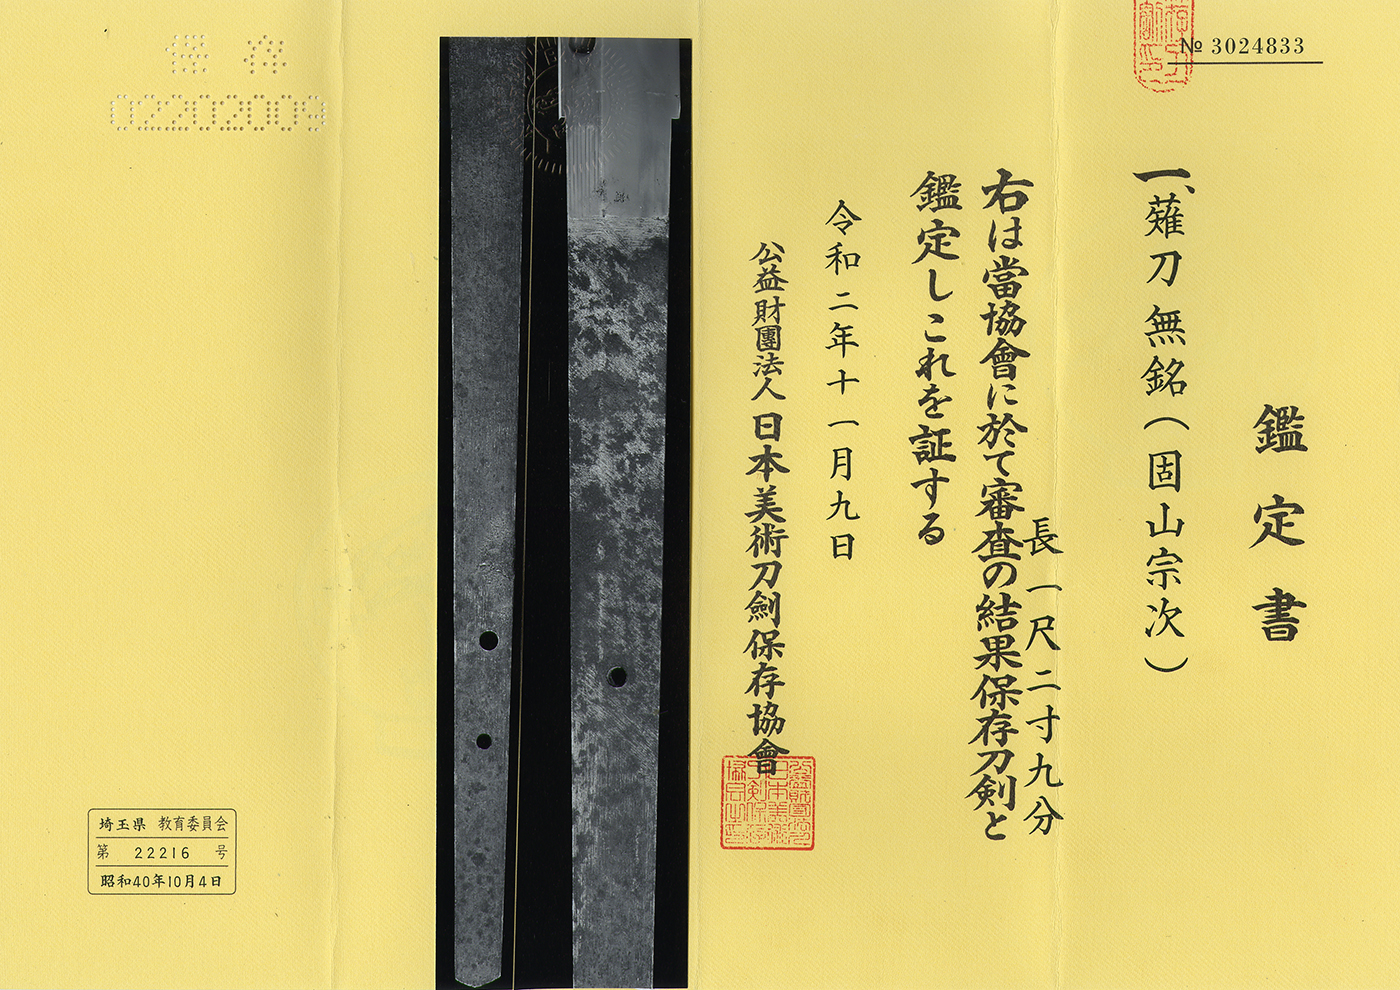 № 3024833
鑑定書
一、薙刀無銘（固山宗次）
長一尺二寸九分
右は當協會に於て審査の結果保存刀剣と
鑑定しこれを証する
令和二年十一月九日
公益財團法人日本美術刀劍保存協會
保存
02202009
埼玉県 教育委員会
第 22216 号
昭和40年10月4日